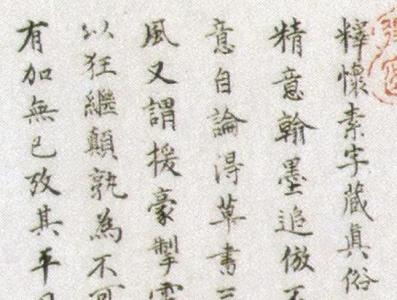 釋懷素字藏真俗
精意翰墨追倣不
意自論得草書三
風又謂援豪掣電
以狂繼顛孰為不可
有加無已攷其平日